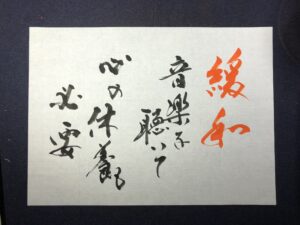 緩和
音楽を
聴いて
心の休養も
必要